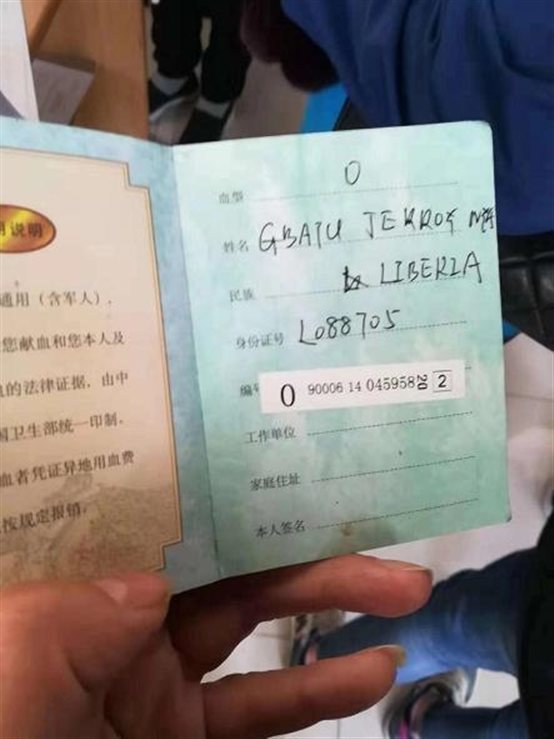 说明
通用（含军人）．
您献血和您本人及
的法律证据，由中
国卫生部统一印制．
血者凭证异地用血费
按规定报销．
血型 O
姓名 GBATU JERROY
民族 LIBERIA
身份证号 L088705
编号 O 90006 14 045958 20 2
工作单位
家庭住址
本人签名